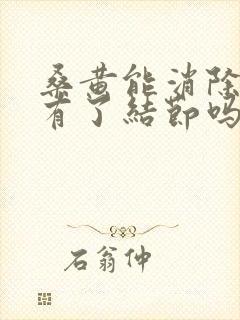 桑黄能消除
有了結節吗
石翁仲